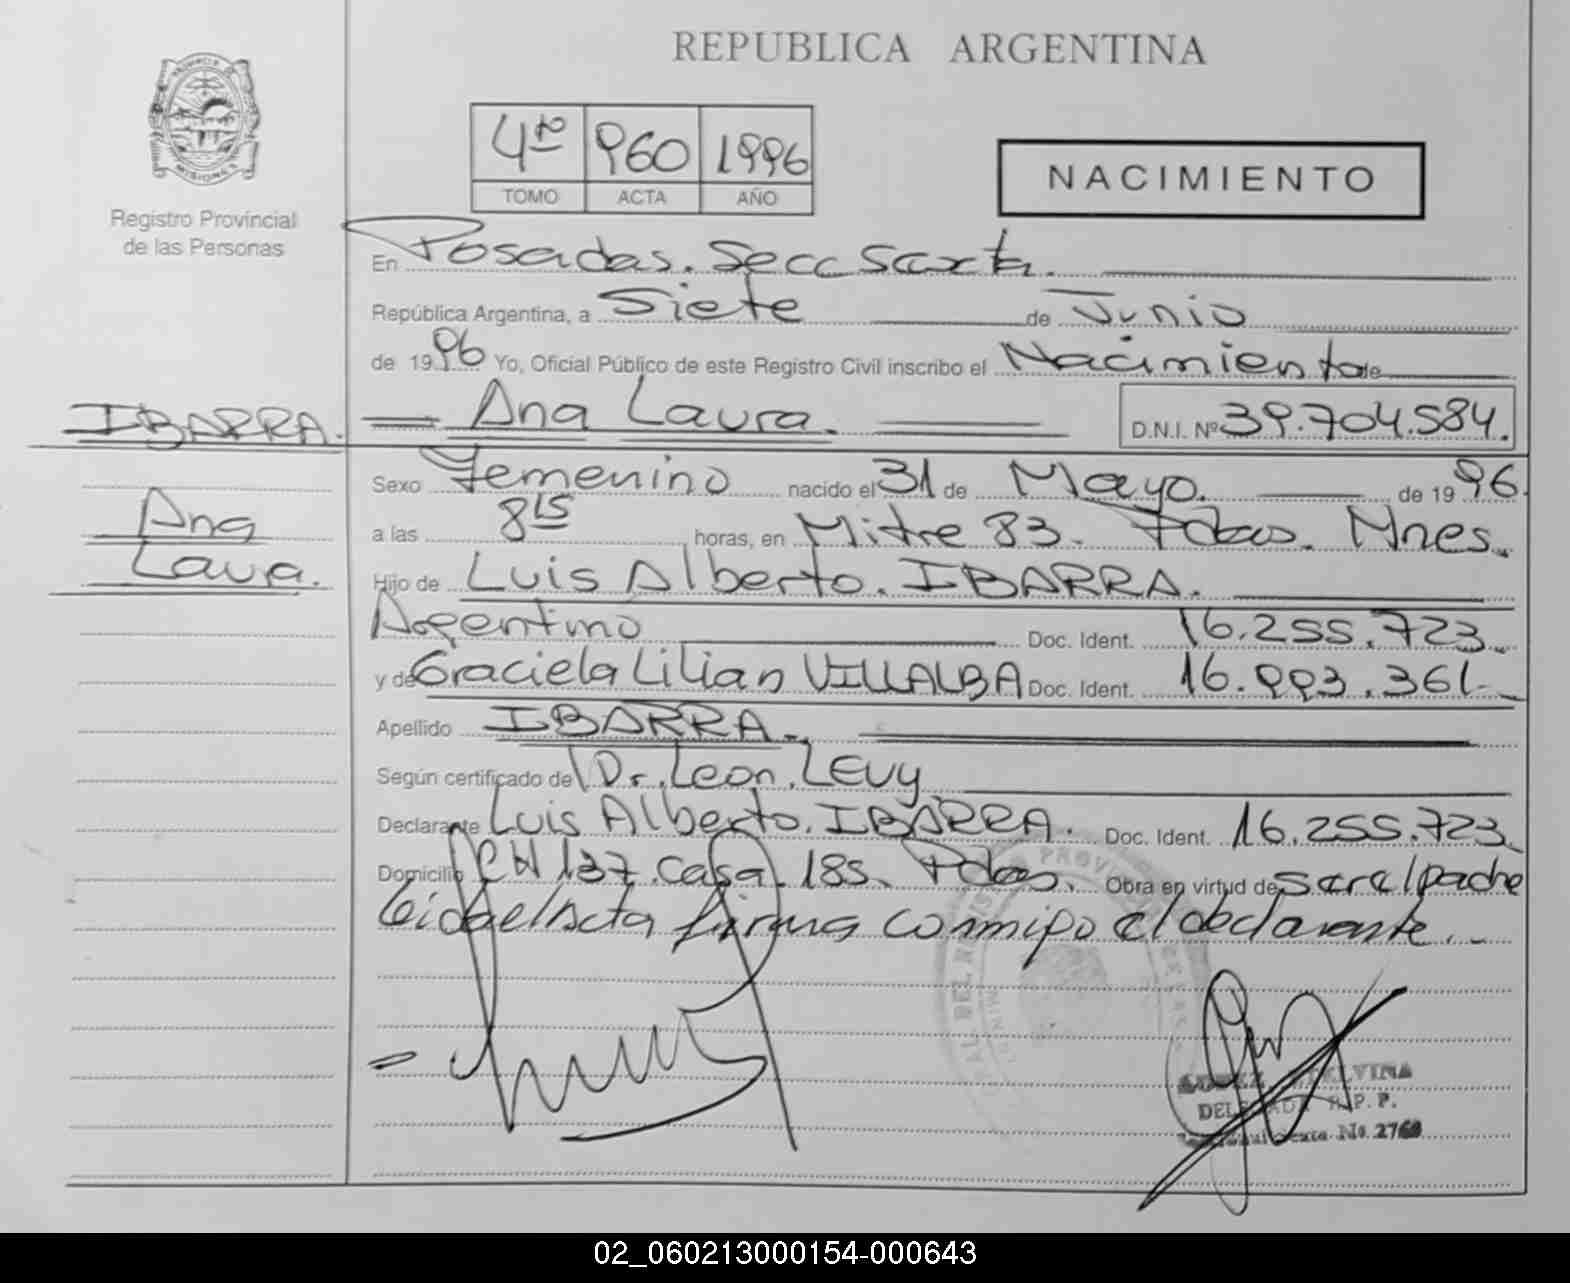 REPUBLICA ARGENTINA
4to 960 1996
TOMO ACTA AÑO
NACIMIENTO
MISIONES
Registro Provincial
de las Personas
En Posadas. Secc Sexta.
República Argentina, a Siete de Junio
de 1996 Yo, Oficial Público de este Registro Civil inscribo el Nacimiento de
IBARRA.
Ana Laura. D.N.I. Nº 39.704.584.
Ana
Laura.
Sexo Femenino nacido el 31 de Mayo. de 1996.
a las 8 15 horas, en Mitre 83. Pdas. Mnes.
Hijo de Luis Alberto. IBARRA.
Argentino Doc. Ident. 16.255.723.
y de Graciela Lilian VILLALBA Doc. Ident. 16.993.361.
Apellido IBARRA.
Según certificado de Dr. Leon. LEVY
Declarante Luis Alberto. IBARRA. Doc. Ident. 16.255.723.
Domicilio CH 137. Casa. 185. Pdas. Obra en virtud de ser el padre
Leida el Acta firma conmigo el declarante.
DELEGADA R.P.P.
No 2760
02_060213000154-000643